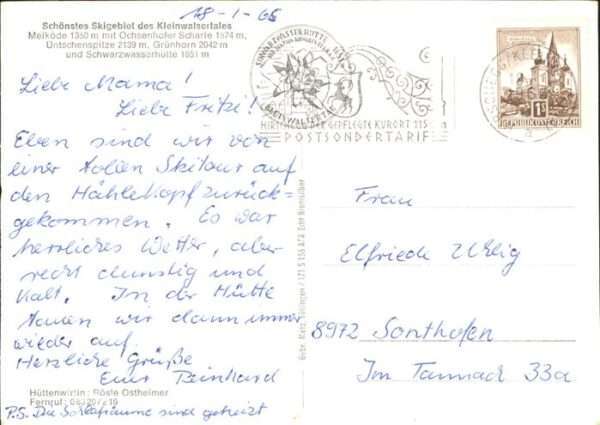 18-1-65
Schönstes Skigebiet des Kleinwalsertales
Melköde 1350 m mit Ochsenhofer Scharte 1874 m,
Üntschenspitze 2139 m, Grünhorn 2042 m
und Schwarzwasserhütte 1651 m
Liebe Mama!
Liebe Fritzi!
Eben sind wir von
einer tollen Skitour auf
den Hählekopf zurück-
gekommen. Es war
herrliches Wetter, aber
recht dunstig und
kalt. In der Hütte
tauen wir dann immer
wieder auf.
Herzliche Grüße
Euer Reinhard
Hüttenwirtin: Rösle Ostheimer
P.S. Die Schlafräume sind geheizt
KLEINWALSERTAL
HIRSCHEGG DER GEPFLEGTE KURORT
POSTSONDERTARIF
1 S
REPUBLIK ÖSTERREICH
Gebr. Metz Tübingen
Echt Bromsilber
Frau
Elfriede Uhlig
8972 Sonthofen
Im Tannach 33a